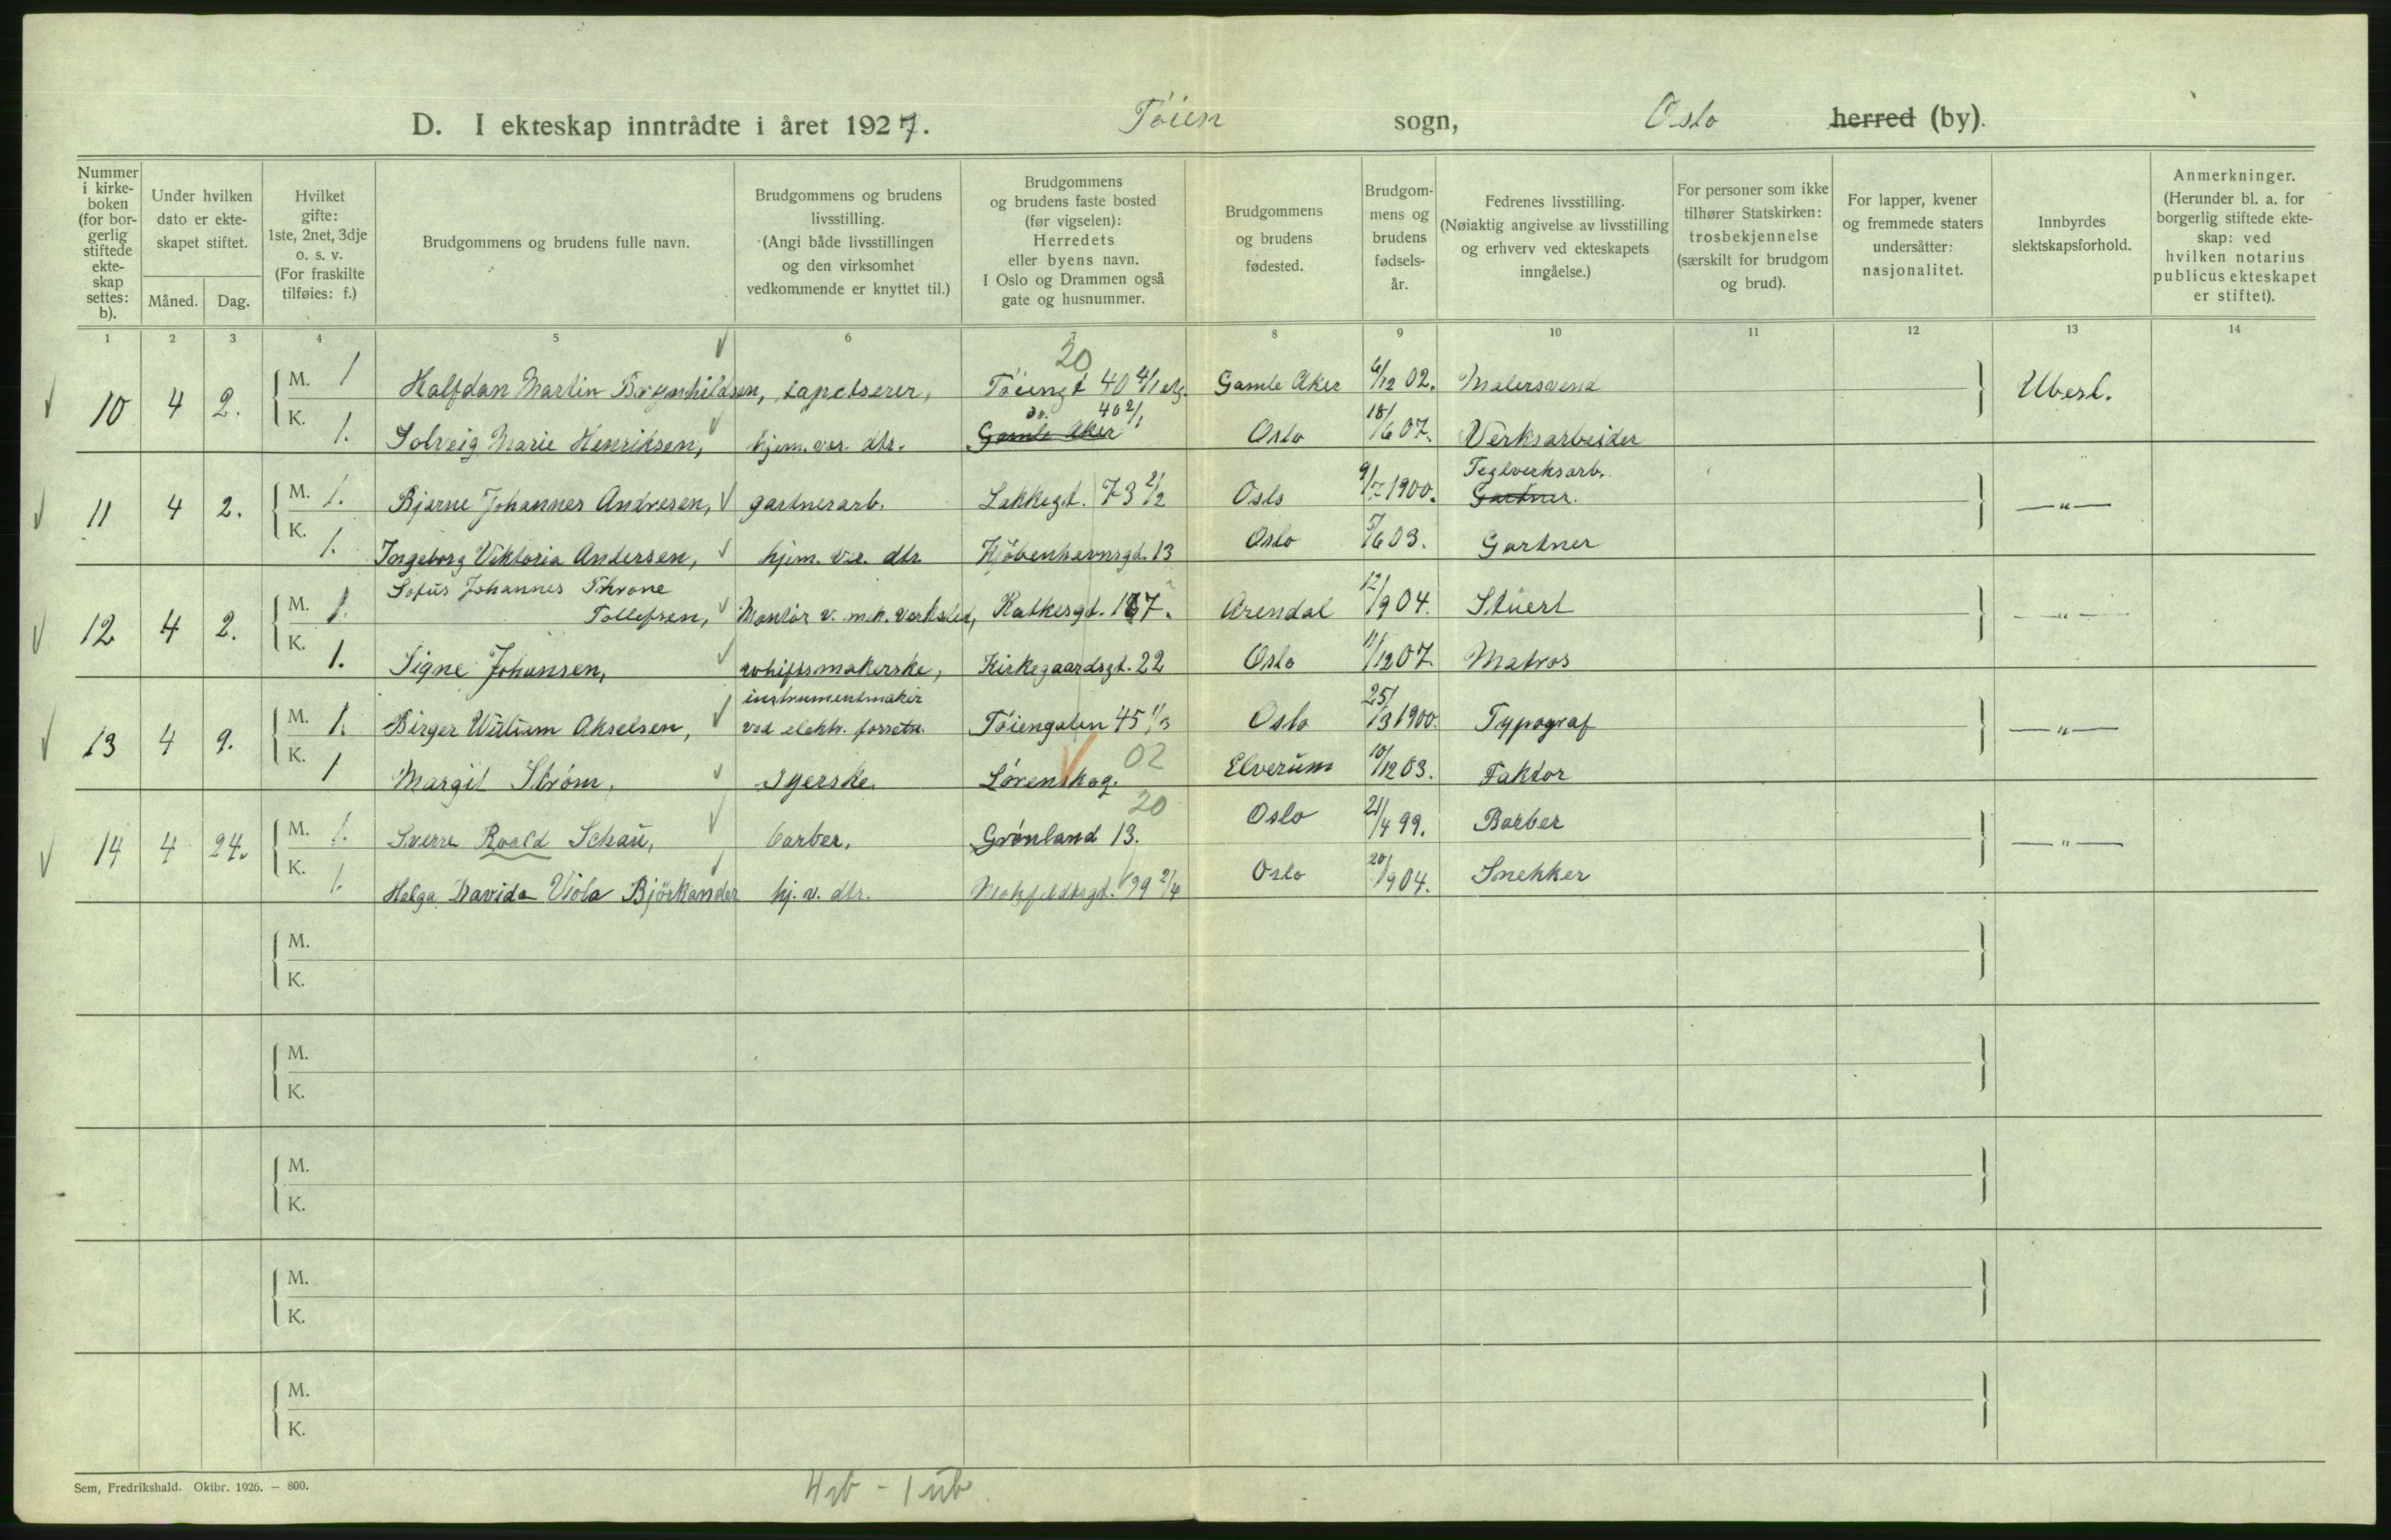 D. I ekteskap inntrådte i året 1927. Töien sogn, Oslo herred (by).
Nummer i kirkeboken (for borgerlig stiftede ekteskap settes: b).
Under hvilken dato er ekteskapet stiftet.
Måned. Dag.
Hvilket gifte: 1ste, 2net, 3dje o. s. v. (For fraskilte tilføies: f.)
Brudgommens og brudens fulle navn.
Brudgommens og brudens livsstilling. (Angi både livsstillingen og den virksomhet vedkommende er knyttet til.)
Brudgommens og brudens faste bosted (før vigselen): Herredets eller byens navn. I Oslo og Drammen også gate og husnummer.
Brudgommens og brudens fødested.
Brudgommens og brudens fødselsår.
Fedrenes livsstilling. (Nøiaktig angivelse av livsstilling og erhverv ved ekteskapets inngåelse.)
For personer som ikke tilhører Statskirken: trosbekjennelse (særskilt for brudgom og brud).
For lapper, kvener og fremmede staters undersåtter: nasjonalitet.
Innbyrdes slektskapsforhold.
Anmerkninger. (Herunder bl. a. for borgerlig stiftede ekteskap: ved hvilken notarius publicus ekteskapet er stiftet).
1 2 3 4 5 6 8 9 10 11 12 13 14
20
10 4 2. M. 1 Halfdan Martin Brynhildsen, tapetserer, Töiengt 40 4/1 etg. Gamle Aker 6/12 02. Malersvend Ubesl.
do. 40 2/1
K. 1. Solveig Marie Henriksen, hjem.vær. dtr. Gamle Aker Oslo 18/6 07. Verksarbeider
Teglverksarb.
11 4 2. M. 1. Bjarne Johannes Andresen, gartnerarb. Lakkegt. 73 2/2 Oslo 9/7 1900. Gartner. — " —
K. 1. Ingeborg Viktoria Andersen, hjem. vær. dtr. Kjöbenhavnsgt. 13 Oslo 5/6 03. Gartner
Sofus Johannes Throne
12 4 2. M. 1. Tollefsen, Montör v. mek. verksted, Ratkesgt. 17. Arendal 12/9 04. Stuert — " —
K. 1. Signe Johansen, vohiftsmakerske, Kirkegaardsgt. 22 Oslo 11/12 07. Matros
instrumentmaker
13 4 9. M. 1. Birger William Akselsen, ved elektr. forretn. Töiengaten 45 1/3 Oslo 25/3 1900. Typograf — " —
02
K. 1 Margit Ström, Syerske. Lörenskog. Elverum 10/12 03. Faktor
20
14 4 24. M. 1. Sverre Roald Schau, barber, Grönland 13. Oslo 21/4 99. Barber — " —
K. 1. Helga Davida Viola Björkander hj. v. dtr. Motzfeldtsgt. 39 2/4 Oslo 20/9 04. Snekker
M.
K.
M.
K.
M.
K.
M.
K.
M.
K.
Sem, Fredrikshald. Oktbr. 1926. — 800.